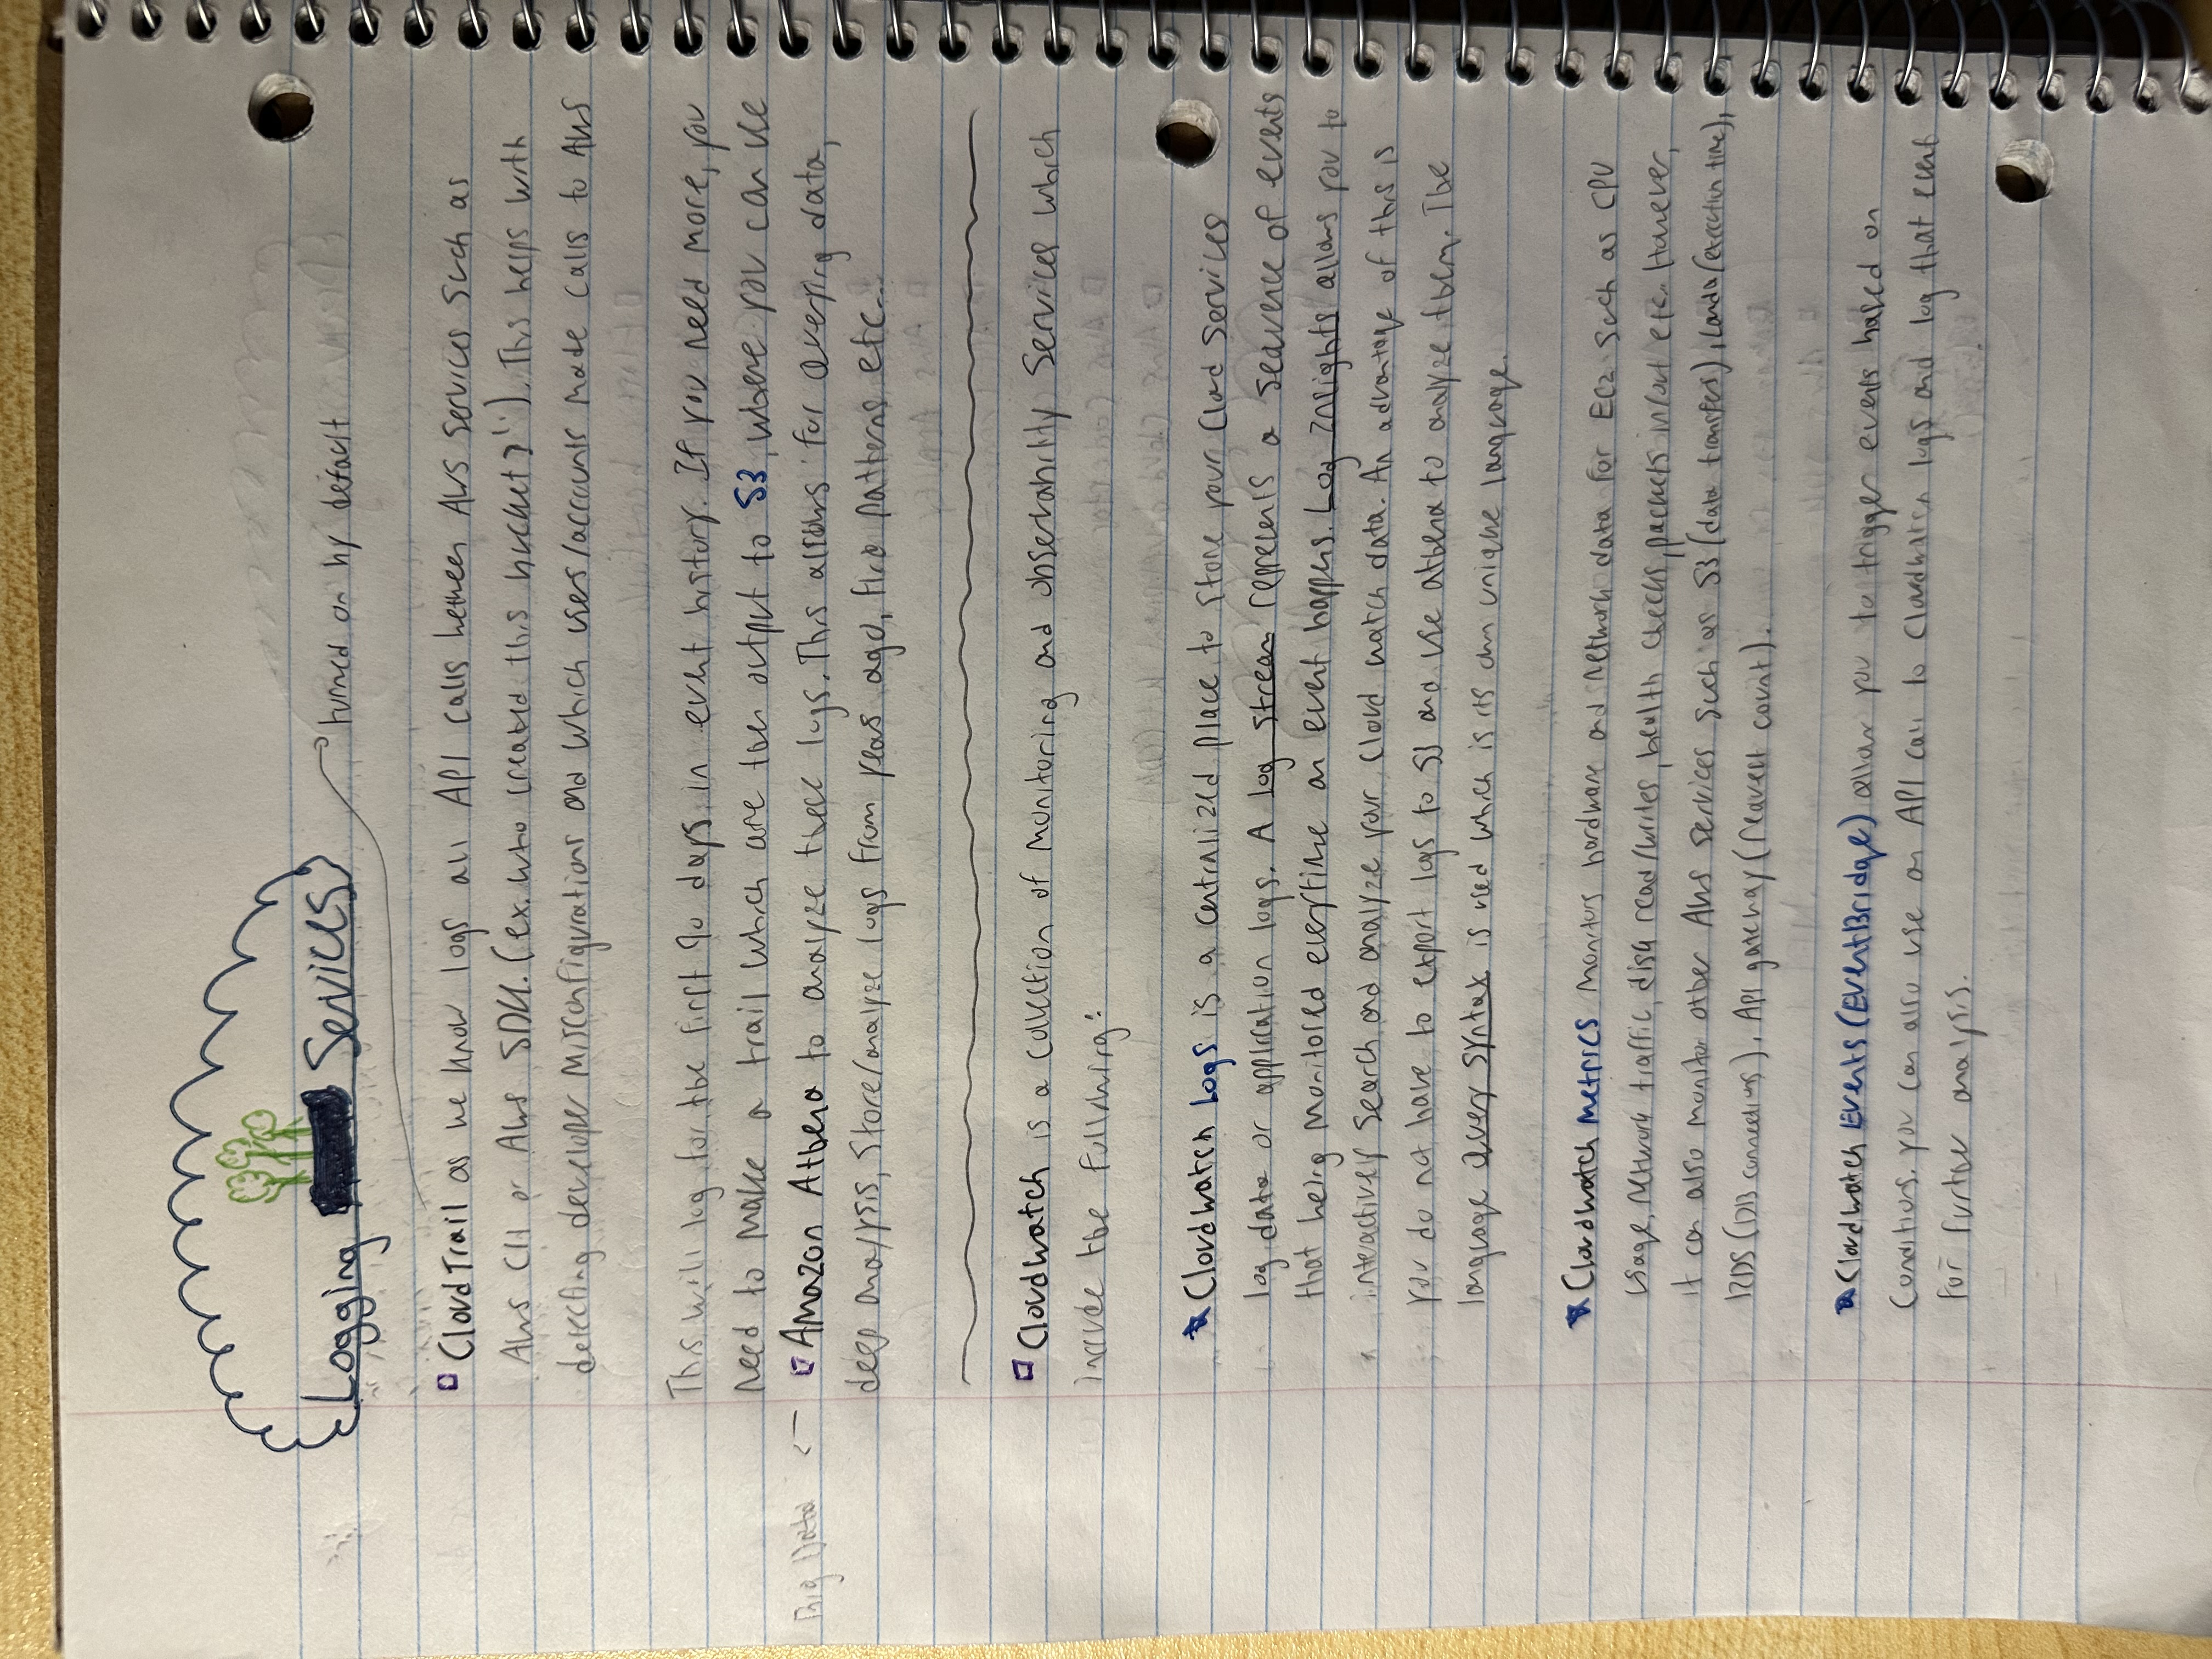 Logging Services
turned on by default
CloudTrail as we know logs all API calls between AWS services such as
AWS CLI or AWS SDK. (ex. who created this bucket?"). This helps with
detecting developer misconfigurations and which users/accounts made calls to AWS
This will log for the first 90 days in event history. If you need more, you
need to make a trail which are then output to S3, where you can use
Big Data ← Amazon Athena to analyze these logs. This allows for Querying data,
deep analysis, store/analyze logs from years ago, find patterns etc...
Cloudwatch is a collection of monitoring and observability services which
include the following:
Cloudwatch Logs is a centralized place to store your Cloud services
log data or application logs. A log stream represents a sequence of events
that being monitored everytime an event happens. Log Insights allows you to
interactively search and analyze your Cloud watch data. An advantage of this is
you do not have to export logs to S3 and use athena to analyze them. The
language Query syntax is used which is its own unique language.
Cloudwatch Metrics monitors hardware and network data for EC2 such as CPU
usage, network traffic, disk read/writes, health checks, packets in/out etc.. However,
it can also monitor other AWS services such as S3 (data transfers), Lamda (execution time),
RDS (DB connections), API gateway (request count).
Cloudwatch Events (EventBridge) allow you to trigger events based on
conditions. you can also use an API call to Cloudwatch logs and log that event
for further analysis.